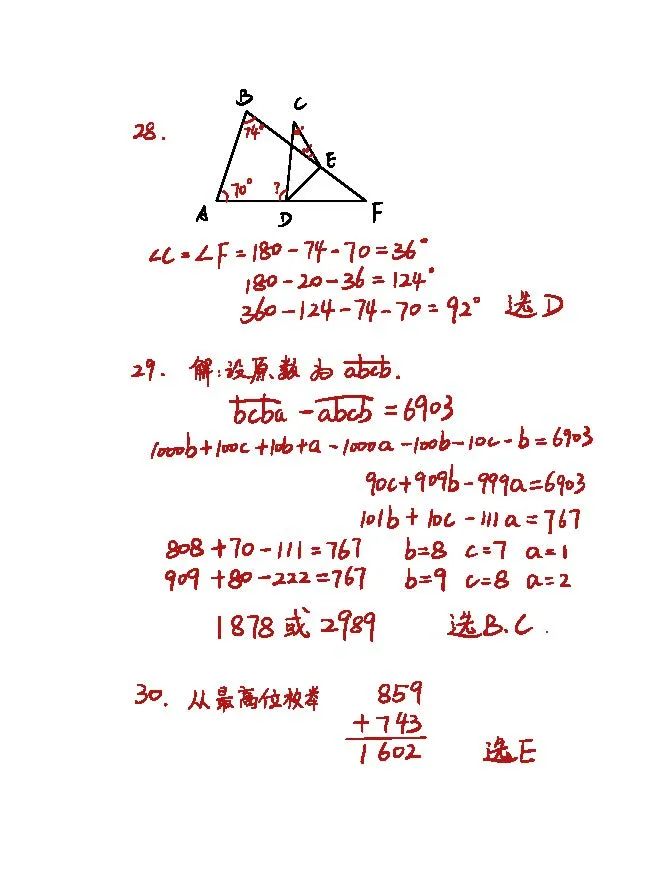 28.
B
C
74°
E
70°
?
A
D
F
∠C=∠F=180-74-70=36°
180-20-36=124°
360-124-74-70=92° 选D
29. 解:设原数为abcb.
bcba-abcb=6903
1000b+100c+10b+a-1000a-100b-10c-b=6903
90c+909b-999a=6903
101b+10c-111a=767
808+70-111=767 b=8 c=7 a=1
909+80-222=767 b=9 c=8 a=2
1878或2989 选B.C.
30. 从最高位枚举 859
+743
1602 选E